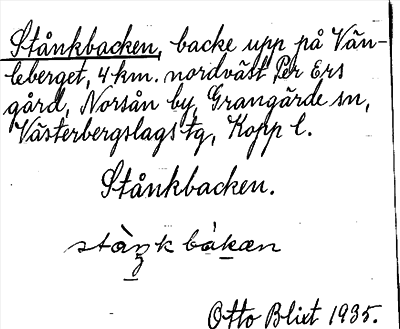 Stånkbacken, backe upp på Vän-
leberget, 4 km. nordväst Per Ers
gård, Norsån by, Grangärde sn,
Västerbergslags tg, Kopp l.
Stånkbacken.
Otto Blixt 1935.